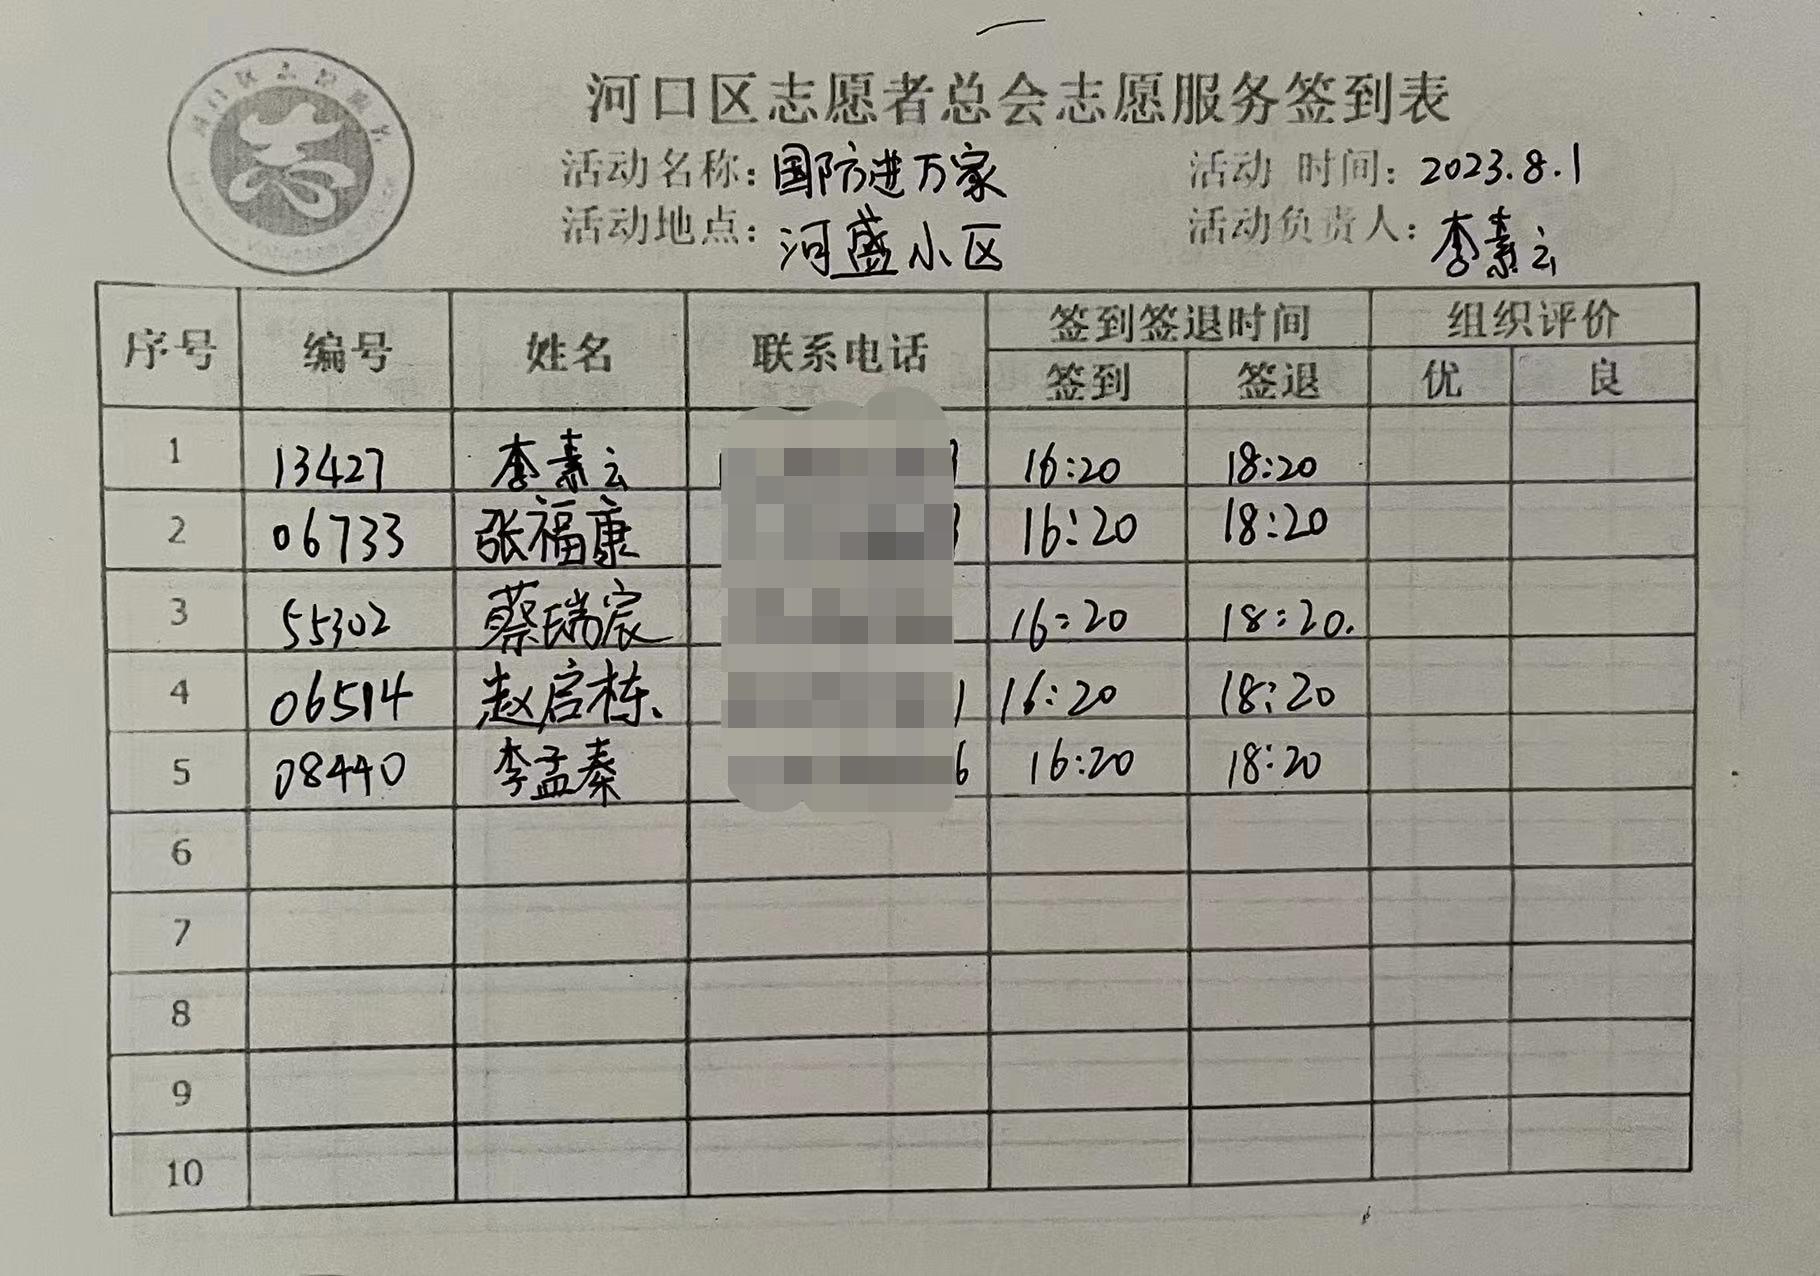 河口区志愿者总会志愿服务签到表
活动名称：国防进万家 活动 时间：2023.8.1
活动地点：河盛小区 活动负责人：李素云
序号 编号 姓名 联系电话 签到签退时间 组织评价
签到 签退 优 良
1 13427 李素云 16:20 18:20
2 06733 张福康 3 16:20 18:20
3 55302 蔡瑞宸 16:20 18:20.
4 06514 赵启栋、 1 16:20 18:20
5 08440 李孟秦 6 16:20 18:20
6
7
8
9
10